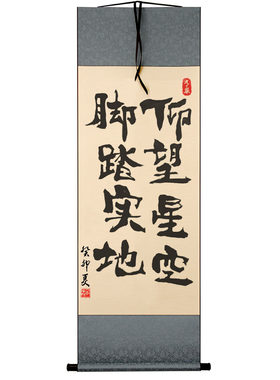 仰望星空
脚踏实地
癸卯夏